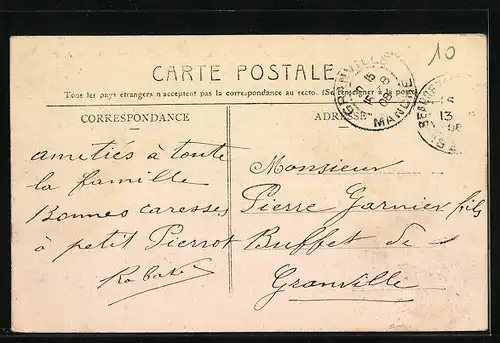 10
CARTE POSTALE
Tous les pays étrangers n'acceptent pas la correspondance au recto. (Se renseigner à la poste)
CORRESPONDANCE
ADRESSE
GRANVILLE
MANCHE
13
amitiés à toute
la famille
Bonnes caresses
à petit Pierrot
Monsieur
Pierre Garnier fils
Buffet de
Granville